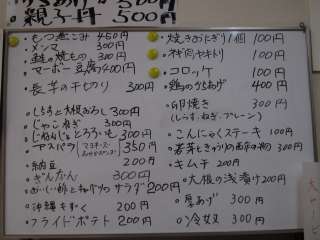 親子丼 500円
・もつ煮こみ 450円
・メンマ 300円
・鮭の焼もの 300円
・マーボー豆腐 400円
・長芋の千切り 300円
・しらすと大根おろし 300円
・じゃこねぎ 300円
・とろろいも 300円
・アスパラ 350円
・納豆 200円
・ぎんなん 300円
サラダ 200円
・沖縄もずく 200円
・フライドポテト 200円
・焼きおにぎり1個 100円
・ネギ肉ヤキトリ 100円
・コロッケ 100円
・鶏のからあげ 400円
・卵焼き 300円
(しらす、ねぎ、プレーン)
・こんにゃくステーキ 100円
・若芽ときゅうりの酢の物 300円
・キムチ 200円
・大根の浅漬け 200円
・厚あげ 300円
・冷奴 300円